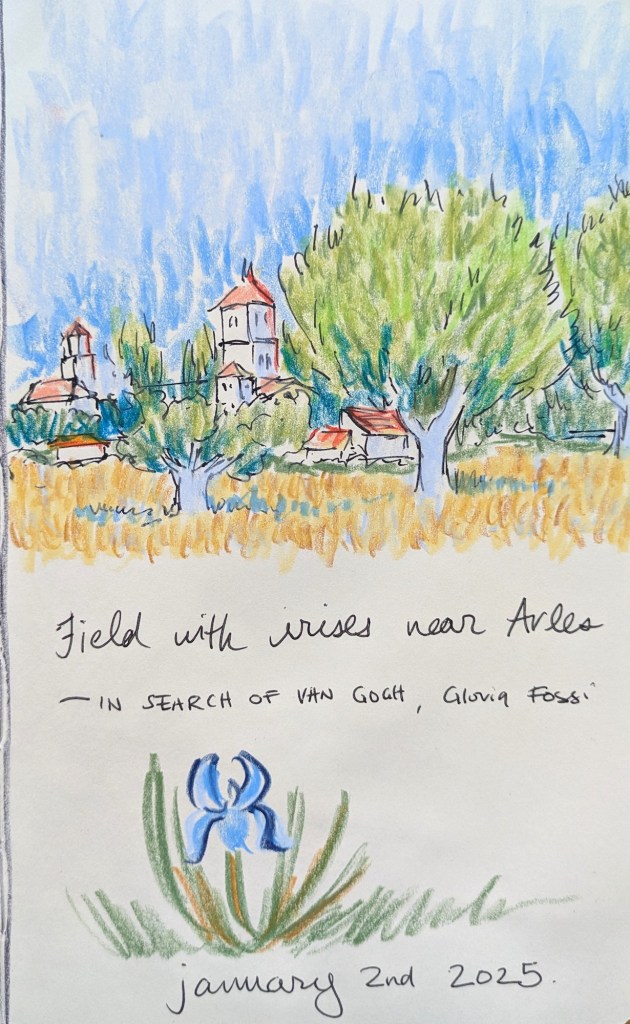 Field with irises near Arles
— IN SEARCH OF VAN GOGH, Gloria Fossi
january 2nd 2025.